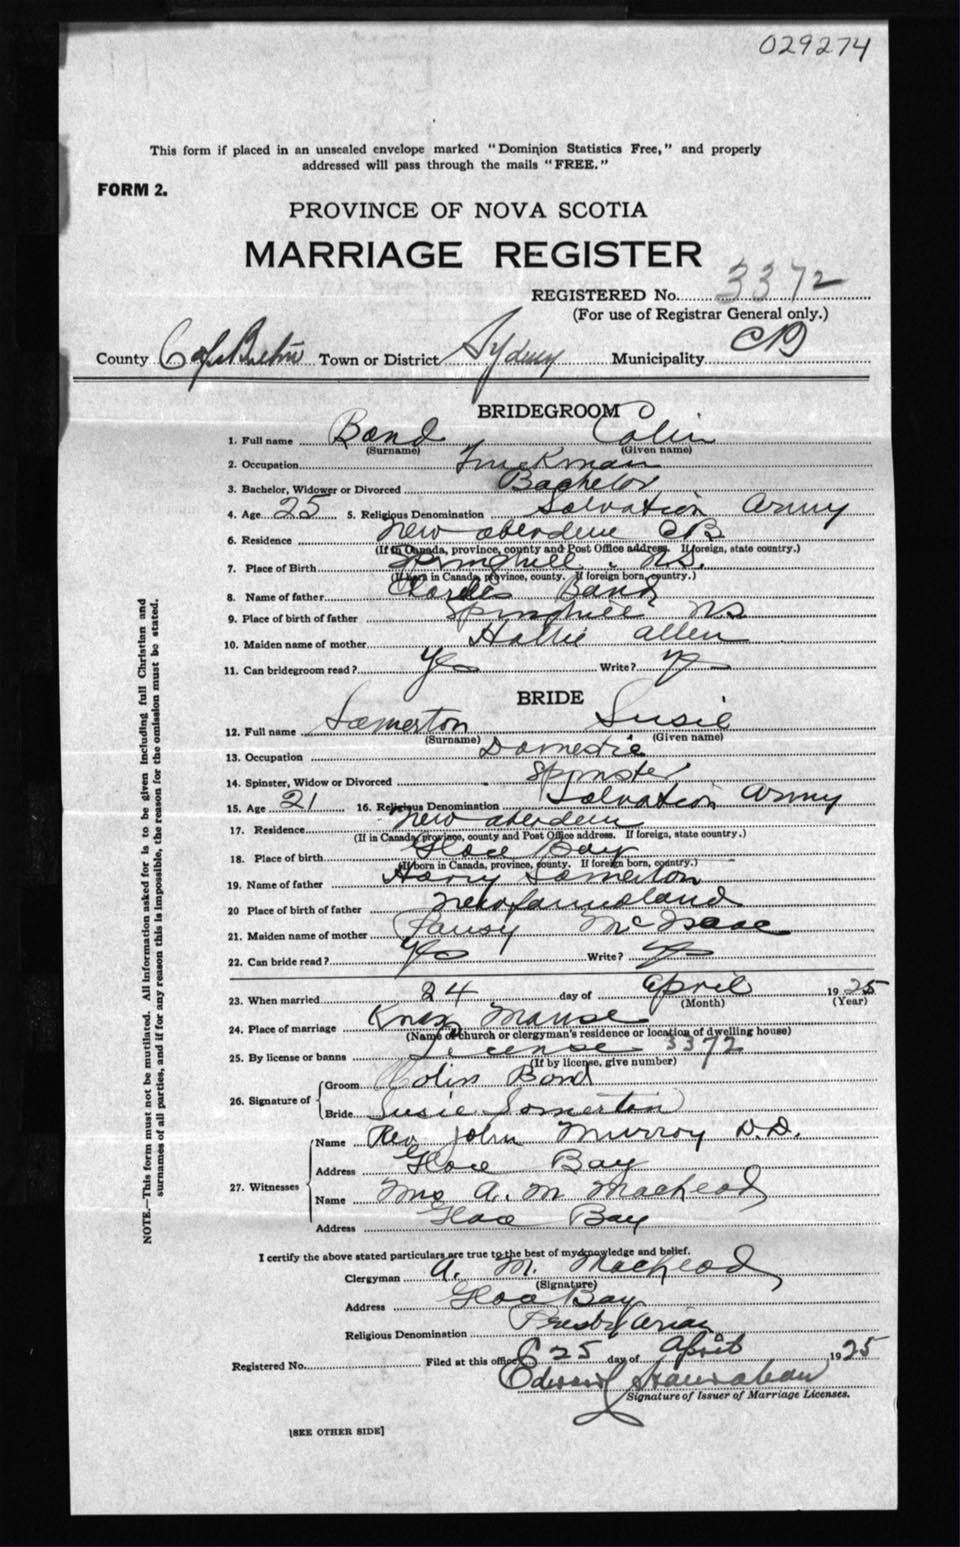 029274
This form if placed in an unsealed envelope marked "Dominion Statistics Free," and properly
addressed will pass through the mails "FREE."
FORM 2.
PROVINCE OF NOVA SCOTIA
MARRIAGE REGISTER
REGISTERED No. 3372
(For use of Registrar General only.)
County Cape Breton Town or District Sydney Municipality CB
BRIDEGROOM
1. Full name Bond Colin
(Surname) (Given name)
2. Occupation Truckman
3. Bachelor, Widower or Divorced Bachelor
4. Age 25 5. Religious Denomination Salvation Army
6. Residence New Aberdeen CB
(If in Canada, province, county and Post Office address. If foreign, state country.)
7. Place of Birth Springhill N.S.
(If born in Canada, province, county. If foreign born, country.)
8. Name of father Charles Bond
9. Place of birth of father Springhill NS
10. Maiden name of mother Hattie Allen
11. Can bridegroom read? Yes Write? Yes
BRIDE
12. Full name Somerton Susie
(Surname) (Given name)
13. Occupation Domestic
14. Spinster, Widow or Divorced Spinster
15. Age 21 16. Religious Denomination Salvation Army
17. Residence New Aberdeen
(If in Canada, province, county and Post Office address. If foreign, state country.)
18. Place of birth Glace Bay
(If born in Canada, province, county. If foreign born, country.)
19. Name of father Harry Somerton
20 Place of birth of father Newfoundland
21. Maiden name of mother Pansy McIsaac
22. Can bride read? Yes Write? Yes
23. When married 24 day of April 1925
(Month) (Year)
24. Place of marriage Knox Manse
(Name of church or clergyman's residence or location of dwelling house)
25. By license or banns License 3372
(If by license, give number)
26. Signature of
Groom Colin Bond
Bride Susie Somerton
27. Witnesses
Name Rev John Murray D.D.
Address Glace Bay
Name Mrs A. M Macleod
Address Glace Bay
I certify the above stated particulars are true to the best of my knowledge and belief.
Clergyman A. M. Macleod
(Signature)
Address Glace Bay
Religious Denomination Presbyterian
Registered No. Filed at this office 25 day of April 1925
Edward
Signature of Issuer of Marriage Licenses.
[SEE OTHER SIDE]
NOTE.—This form must not be mutilated. All information asked for is to be given including full Christian and
surnames of all parties, and if for any reason this is impossible, the reason for the omission must be stated.